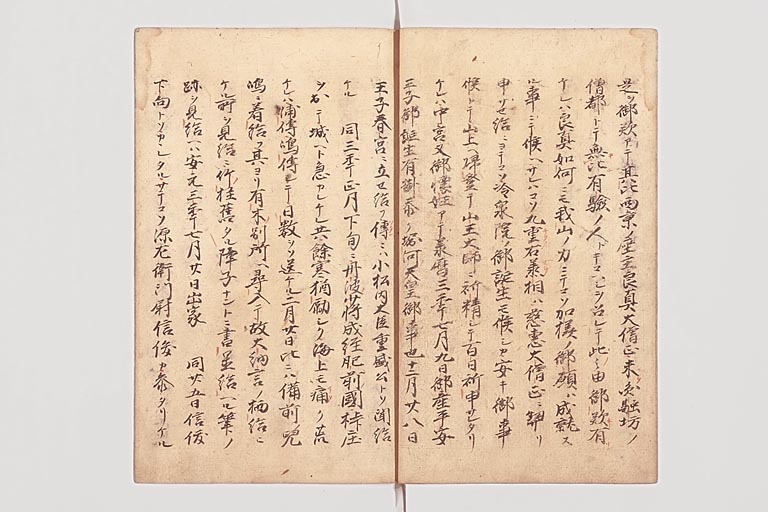 是ヲ御歎アテ其比西京ノ座主良真大僧正未タ円融坊ノ
僧都トテ無止有験ノ人トテマシ〳〵シヲ召シテ此ノ由御歎有
ケレハ良真如何ニモ我山ノ力ニテコソ加様ノ御願ハ成就ス
ル事ニテ候ヘサレハコソ九重右丞相ハ慈恵大僧正ニ契リ
申サセ給ニヨテコソ冷泉院ノ御誕生モ候シカ安キ御事
候トテ山上ヘ碑登テ山王大師ニ祈精シテ百日祈申サセタリ
ケレハ中宮又御懐妊アテ承暦三年七月九日御産平安
王子御誕生有ケリ堀河天皇御事也十二月廿八日
王子春宮ニ立セ給フ傅ニハ小松内大臣重盛公トソ聞給
ケル 同三年正月下旬ニ丹波少将成経肥前國桛庄
ヲ出テ城ヘト急カレケレ共餘寒猶励シク海上モ痛ク荒
ケレハ浦傳嶋傳シテ日数ヲソ送ケル二月廿日比ニハ備前ノ児
嶋ニ着給フ其ヨリ有木別所ヘ尋入テ故大納言ノ栖給ニ
ケル所ヲ見給ニ竹柱舊タル障子ナントニ書置給ヘル筆ノ
跡ヲ見給ヘハ安元三年七月廿日出家 同廿五日信俊
下向トソカヽレタルサテコソ源左衛門尉信俊カ参タリケル